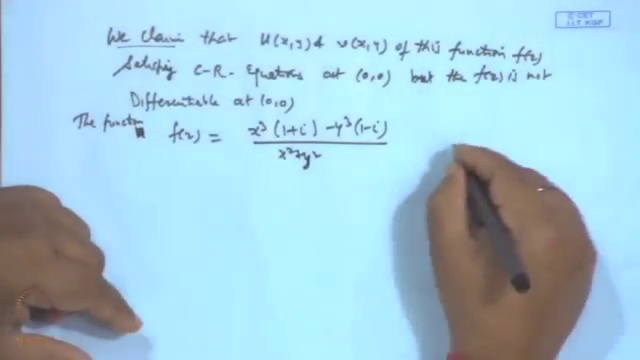 © CET
I.I.T. KGP
We Claim that u(x,y) & v(x,y) of this function f(z)
Satisfying C-R- Equations at (0,0) but the f(z) is not
Differentiable at (0,0)
The function f(z) = x³ (1+i) - y³ (1-i)
x²+y²